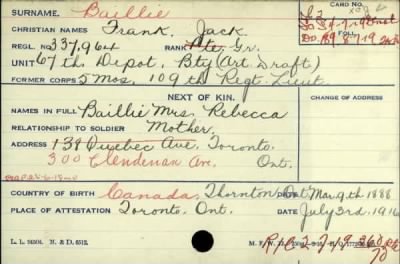 SURNAME. Baillie
CARD NO.
CHRISTIAN NAMES Frank, Jack.
REGL. NO 337,964 RANK Pte, Gr.
FOLL.
UNIT 67th Depot, Bty (Art Draft)
FORMER CORPS 5 Mos. 109th Regt. Lieut
NEXT OF KIN.
CHANGE OF ADDRESS
NAMES IN FULL Baillie Mrs. Rebecca
RELATIONSHIP TO SOLDIER Mother.
ADDRESS 138 Quebec Ave, Toronto.
300 Clendenan Ave. Ont.
COUNTRY OF BIRTH Canada, Thornton Ont. Mar. 9th 1888
PLACE OF ATTESTATION Toronto, Ont. DATE July 3rd, 1916
L. L. M. & D.
M. F. W.